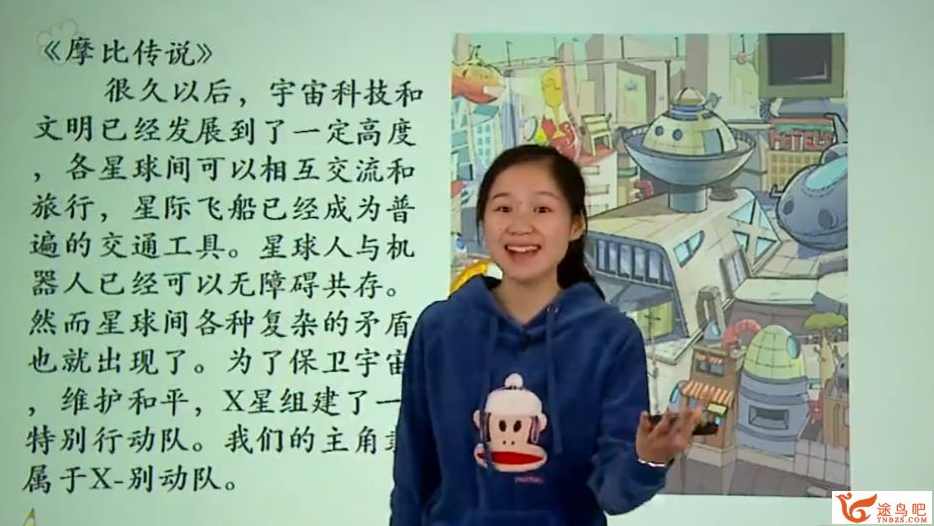 《摩比传说》
很久以后，宇宙科技和
文明已经发展到了一定高度
，各星球间可以相互交流和
旅行，星际飞船已经成为普
遍的交通工具。星球人与机
器人已经可以无障碍共存。
然而星球间各种复杂的矛盾
也就出现了。为了保卫宇宙
，维护和平，X星组建了一
特别行动队。我们的主角
属于X-别动队。
途鸟吧
TNBZS.COM